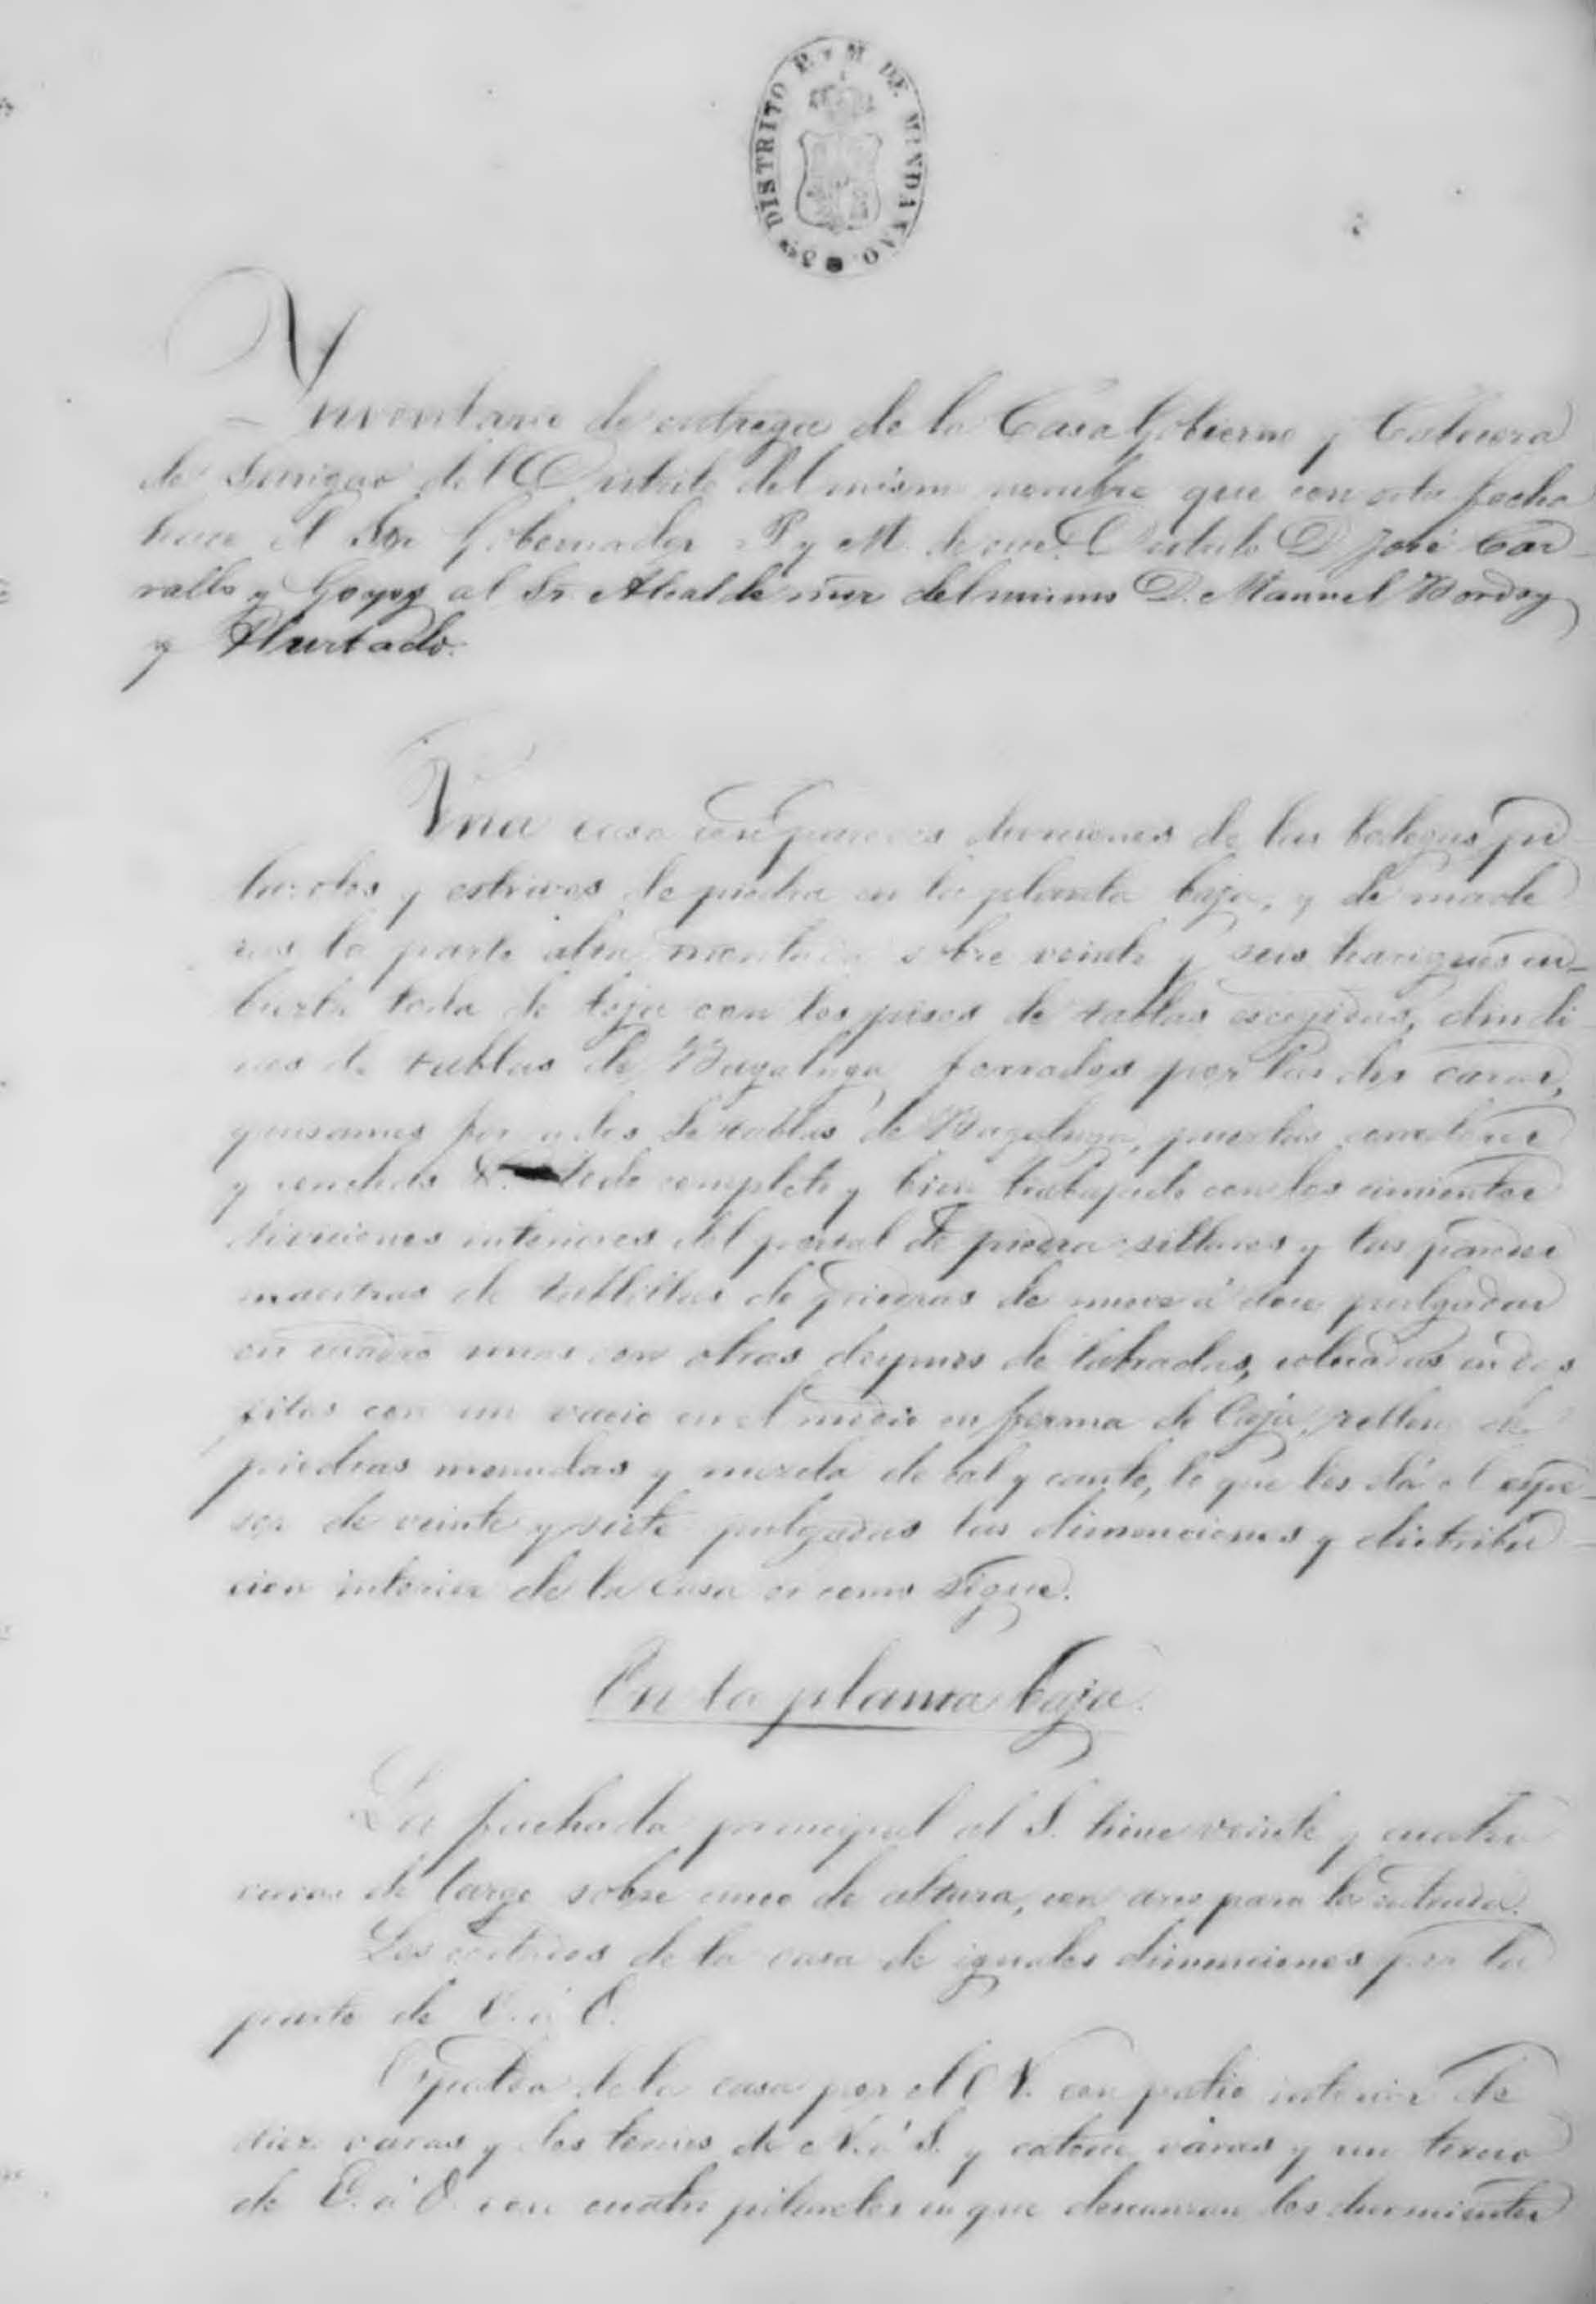 3er DISTRITO P. Y M. DE MINDANAO
Ynventario de entrega de la Casa Gobierno y Cabecera
de Surigao del Distrito del mismo nombre que con esta fecha
hace el Sor Gobernador P. y M. de Distrito D. José Car-
vallo y Goyos al Sr. Alcalde mor del mismo D. Manuel
y Hurtado.
Vna casa con paredes divisiones de las bodegas pi
larotes y estrivos de piedra en la planta baja, y de made
ras la parte alta montada sobre veinte y seis harigues cu-
bierta toda de teja con los pisos de tablas escogidas,
de tablas de Bagaluga forrados por las dos caras,
de tablas de Bagaluga, puertas corredoras
y conchas &. todo completo y bien trabajado con los cimientos
divisiones interiores del portal de piedra sillares y las paredes
maestras de tablillas de piedras de nueve á doce pulgadas
en cuadro unas con otras despues de labradas, colocadas en dos
filas con un vacio en el medio en forma de Caja, relleno de
piedras menudas y mezcla de cal y canto, lo que les dá el espe-
sor de veinte y siete pulgadas las dimenciones y distribu-
cion interior de la casa es como sigue.
En la planta baja.
La fachada principal al S. tiene veinte y cuatro
varas de largo sobre cinco de altura, con arco para la entrada.
Los costados de la casa de iguales dimenciones por la
parte de E. á O.
Espalda de la casa por el N. con patio interior de
diez varas y dos tercios de N. á S. y catorce varas y un tercio
de E. á O. con cuatro pilarotes en que descansan los durmientes